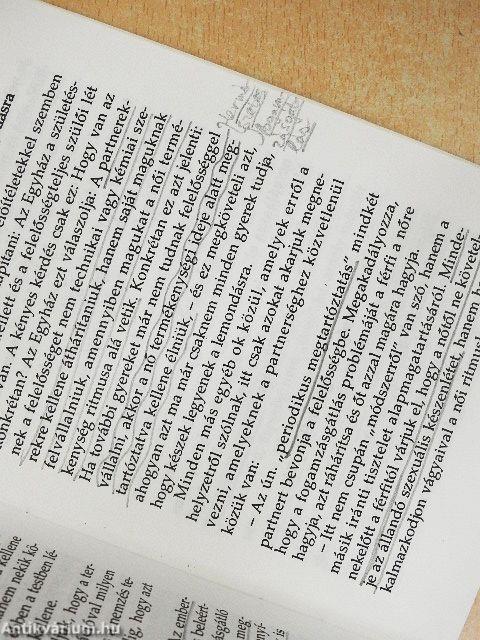 zásra
előítéletekkel szemben
apítani: Az Egyház a születés-
mellett és a felelősségteljes szülői lét
van. A kényes kérdés csak ez: Hogy van az
konkrétan? Az Egyház ezt válaszolja: A partnerek-
nek a felelősséget nem technikai vagy kémiai sze-
rekre kellene áthárítaniuk, hanem saját maguknak
felvállalniuk, amennyiben magukat a női termé-
kenység ritmusa alá vetik. Konkrétan ez azt jelenti:
Ha további gyereket már nem tudnak felelősséggel
vállalni, akkor a nő termékenységi ideje alatt meg-
tartóztatva kellene élniük – és ez megköveteli azt,
ahogyan azt ma már csaknem minden gyerek tudja,
hogy készek legyenek a lemondásra.
Minden más egyéb ok közül, amelyek erről a
helyzetről szólnak, itt csak azokat akarjuk megne-
vezni, amelyeknek a partnerséghez közvetlenül
közük van:
– Az ún. „periodikus megtartóztatás” mindkét
partnert bevonja a felelősségbe. Megakadályozza,
hogy a fogamzásgátlás problémáját a férfi a nőre
hagyja, azt ráhárítsa és őt azzal magára hagyja.
– Itt nem csupán „módszerről” van szó, hanem a
másik iránti tisztelet alapmagatartásáról. Minde-
nekelőtt a férfitól várjuk el, hogy a nőtől ne követel-
je az állandó szexuális készenlétet, hanem ha
kalmazkodjon vágyaival a női ritmus
kellene
hanem nekik kö-
en a testben lé-
eme.
hogy a ter-
tal milyen
emzés te-
g, hogy azt
Az ember-
beleért-
sgálló
meg-
nyi-
is
Antikvárium.hu